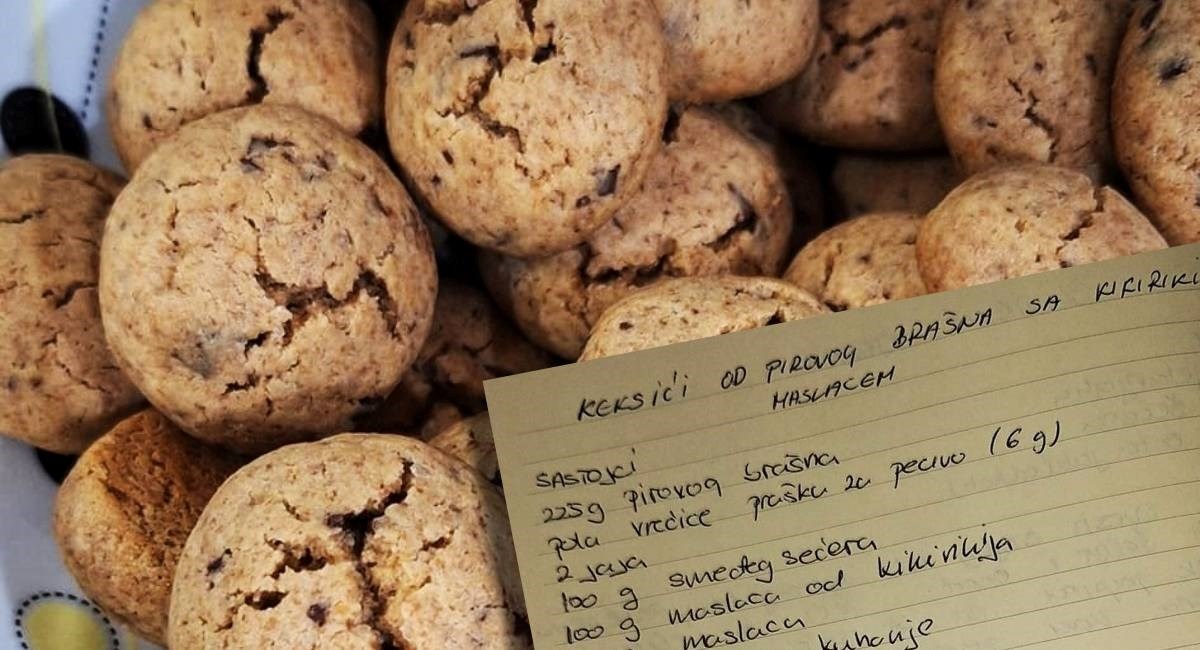 KEKSIĆI OD PIROVOG BRAŠNA SA KIKIRIKI
MASLACEM
SASTOJCI
225g pirovog brašna
pola vrećice praška za pecivo (6 g)
2 jaja
100 g smeđeg šećera
100 g maslaca od kikirikija
maslaca
kuhanje